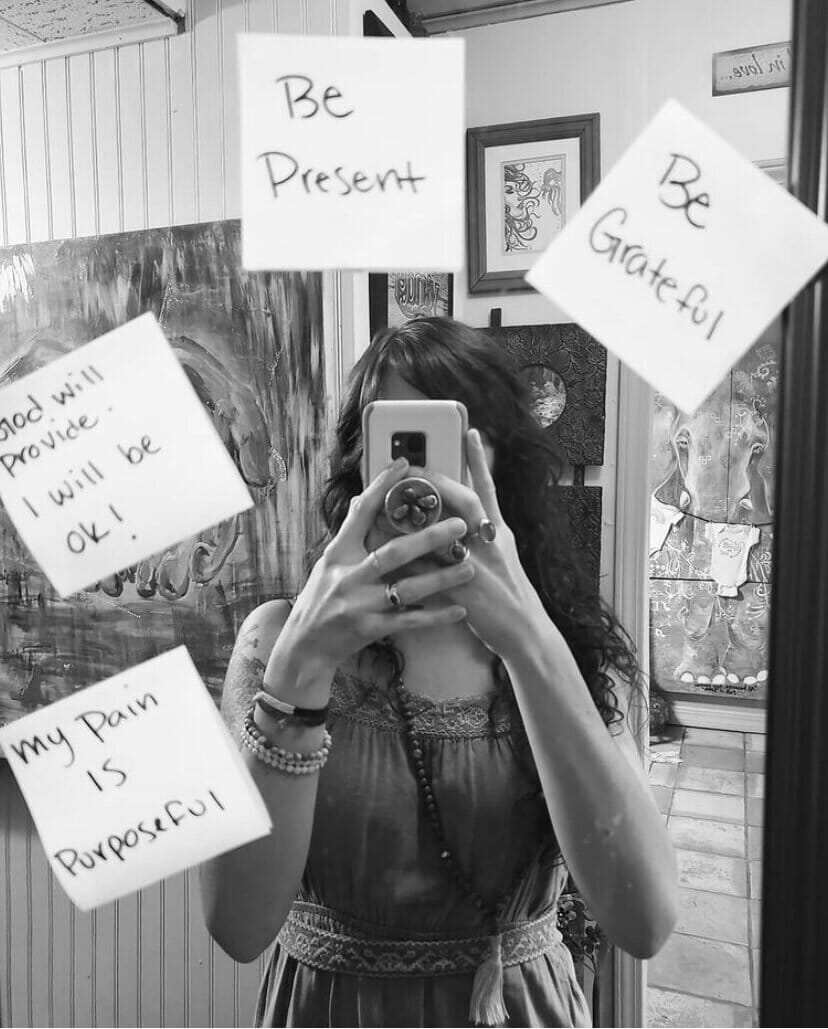 Be
Present
Be
Grateful
God will
provide.
I will be
OK!
My pain
is
purposeful
in love...